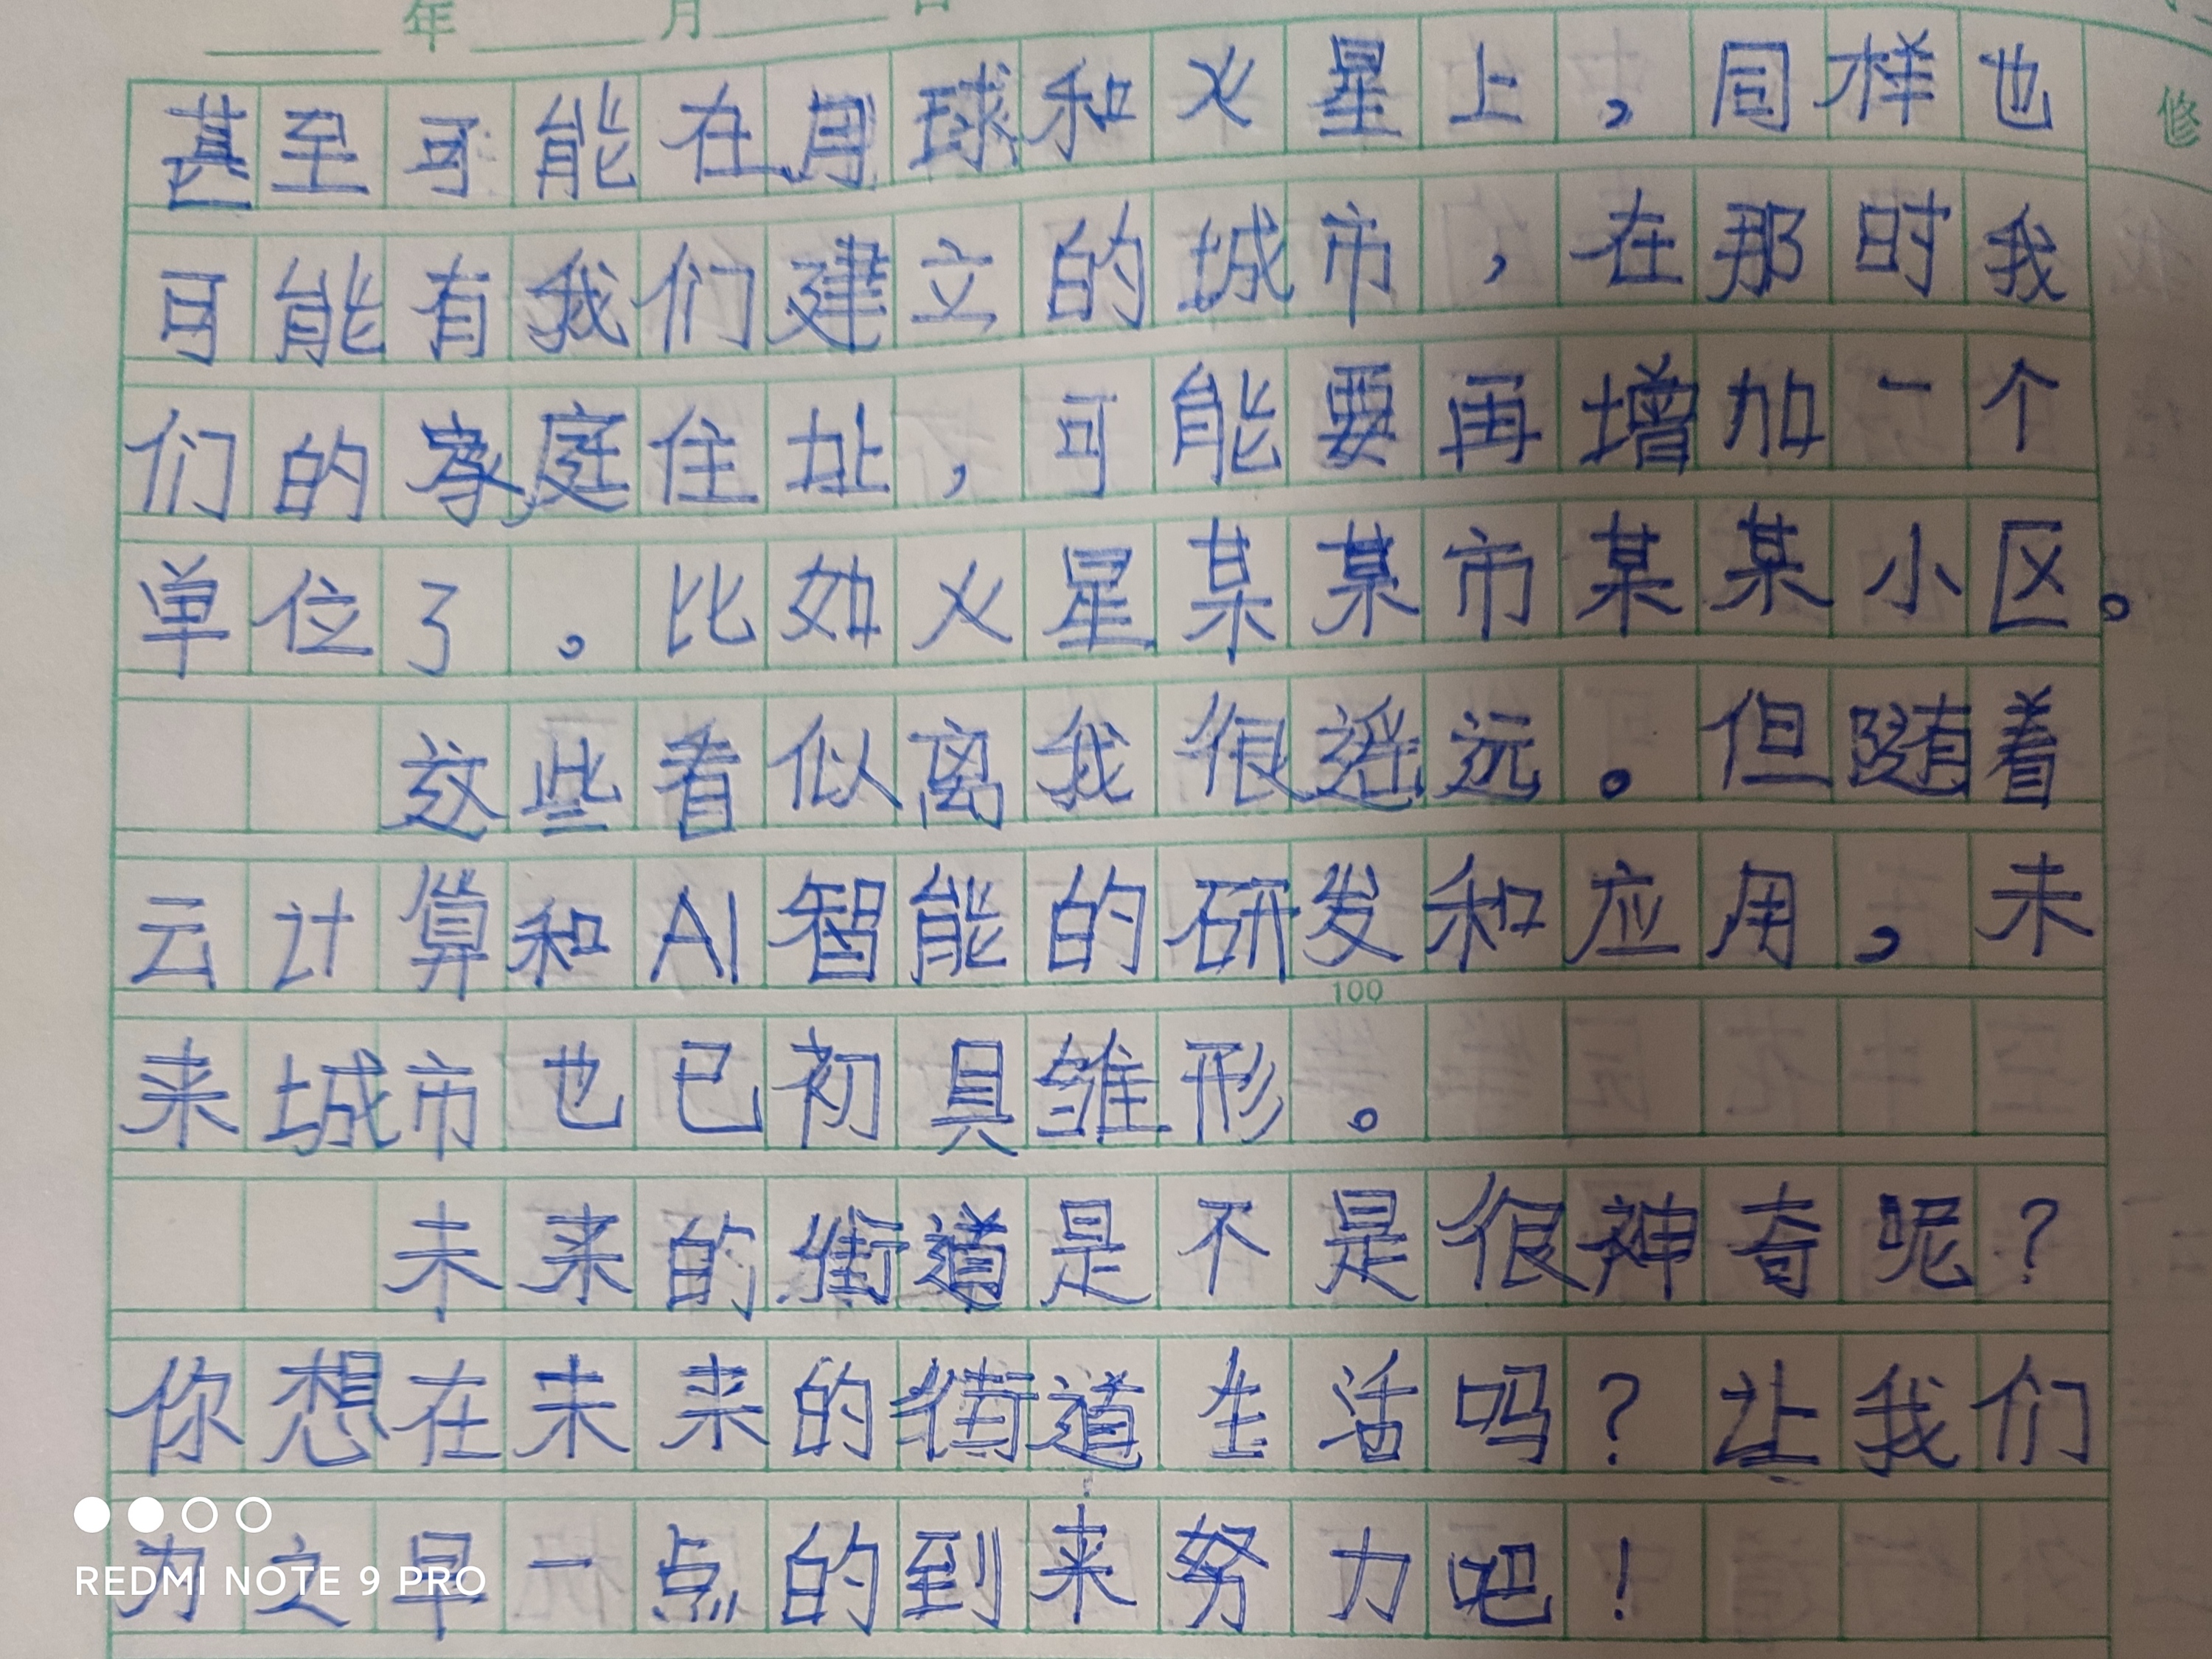 年 月 日
修
甚至可能在月球和火星上，同样也
可能有我们建立的城市，在那时我
们的家庭住址，可能要再增加一个
单位了。比如火星某某市某某小区。
这些看似离我很遥远。但随着
云计算和AI智能的研发和应用，未
100
来城市也已初具雏形。
未来的街道是不是很神奇呢？
你想在未来的街道生活吗？让我们
为之早一点的到来努力吧！
REDMI NOTE 9 PRO